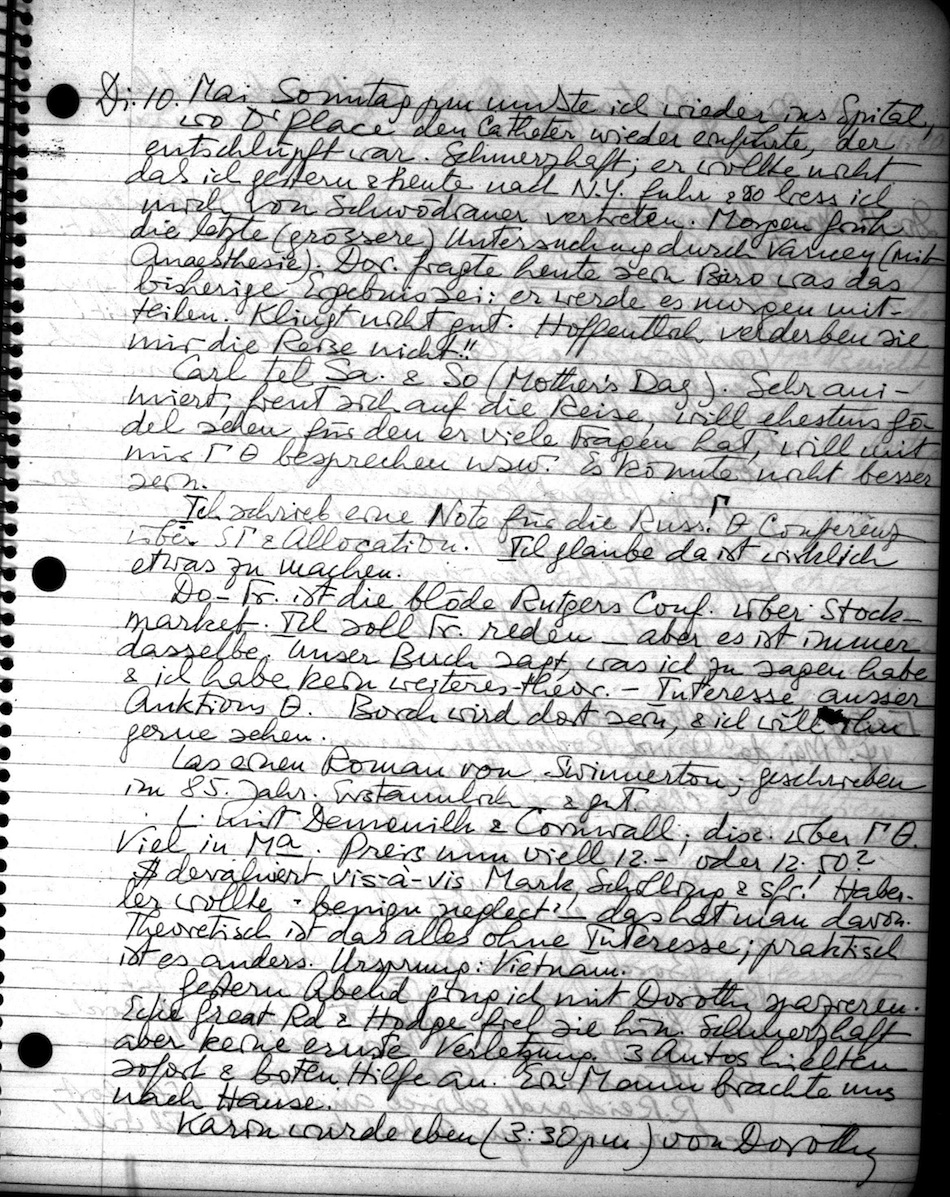 Di. 10. Mai Sonntag pm musste ich wieder ins Spital,
wo Dr Place den Catheter wieder einführte, der
entschlüpft war. Schmerzhaft; er wollte nicht
das ich gestern & heute nach N.Y. fuhr & so liess ich
mich von Schwödiauer vertreten. Morgen früh
die letzte (grössere) Untersuchung durch Varney (mit
Anaesthesie). Dor. fragte heute sein Büro was das
bisherige Ergebnis sei: er werde es morgen mit-
teilen. Klingt nicht gut. Hoffentlich verderben sie
mir die Reise nicht!!
Carl tel Sa. & So (Mother's Day). Sehr ani-
miert, freut sich auf die Reise, will ehestens Gö-
del sehen für den er viele Fragen hat, will mit
mir Γ Θ besprechen usw. Es könnte nicht besser
sein.
Ich schrieb eine Note für die Russ. Γ Θ Conferenz
über SΓ & Allocation. Ich glaube da ist wirklich
etwas zu machen.
Do-Fr. ist die blöde Rutgers Conf. über Stock-
market. Ich soll Fr. reden – aber es ist immer
dasselbe. Unser Buch sagt, was ich zu sagen habe
& ich habe kein weiteres theor. – Interesse ausser
Auktions Θ. Borch wird dort sein, & ich will ihn
gerne sehen.
Las einen Roman von Swinnerton, geschrieben
im 85. Jahr. Erstaunlich & gut.
L. mit Demeuilh & Cornwall, disc. über Γ Θ.
Viel in Ma. Preis nun viell 12.– oder 12.50?
$ devalviert vis-à-vis Mark, Schilling & sfr! Haber-
ler wollte "benign neglect" – das hat man davon.
Theoretisch ist das alles ohne Interesse; praktisch
ist es anders. Ursprung: Vietnam.
Gestern Abend ging ich mit Dorothy spazieren.
Ecke Great Rd & Hodge fiel sie hin. Schmerzhaft
aber keine ernste Verletzung. 3 Autos hielten
sofort & boten Hilfe an. Ein Mann brachte uns
nach Hause.
Karin wurde eben (3:30pm) von Dorothy